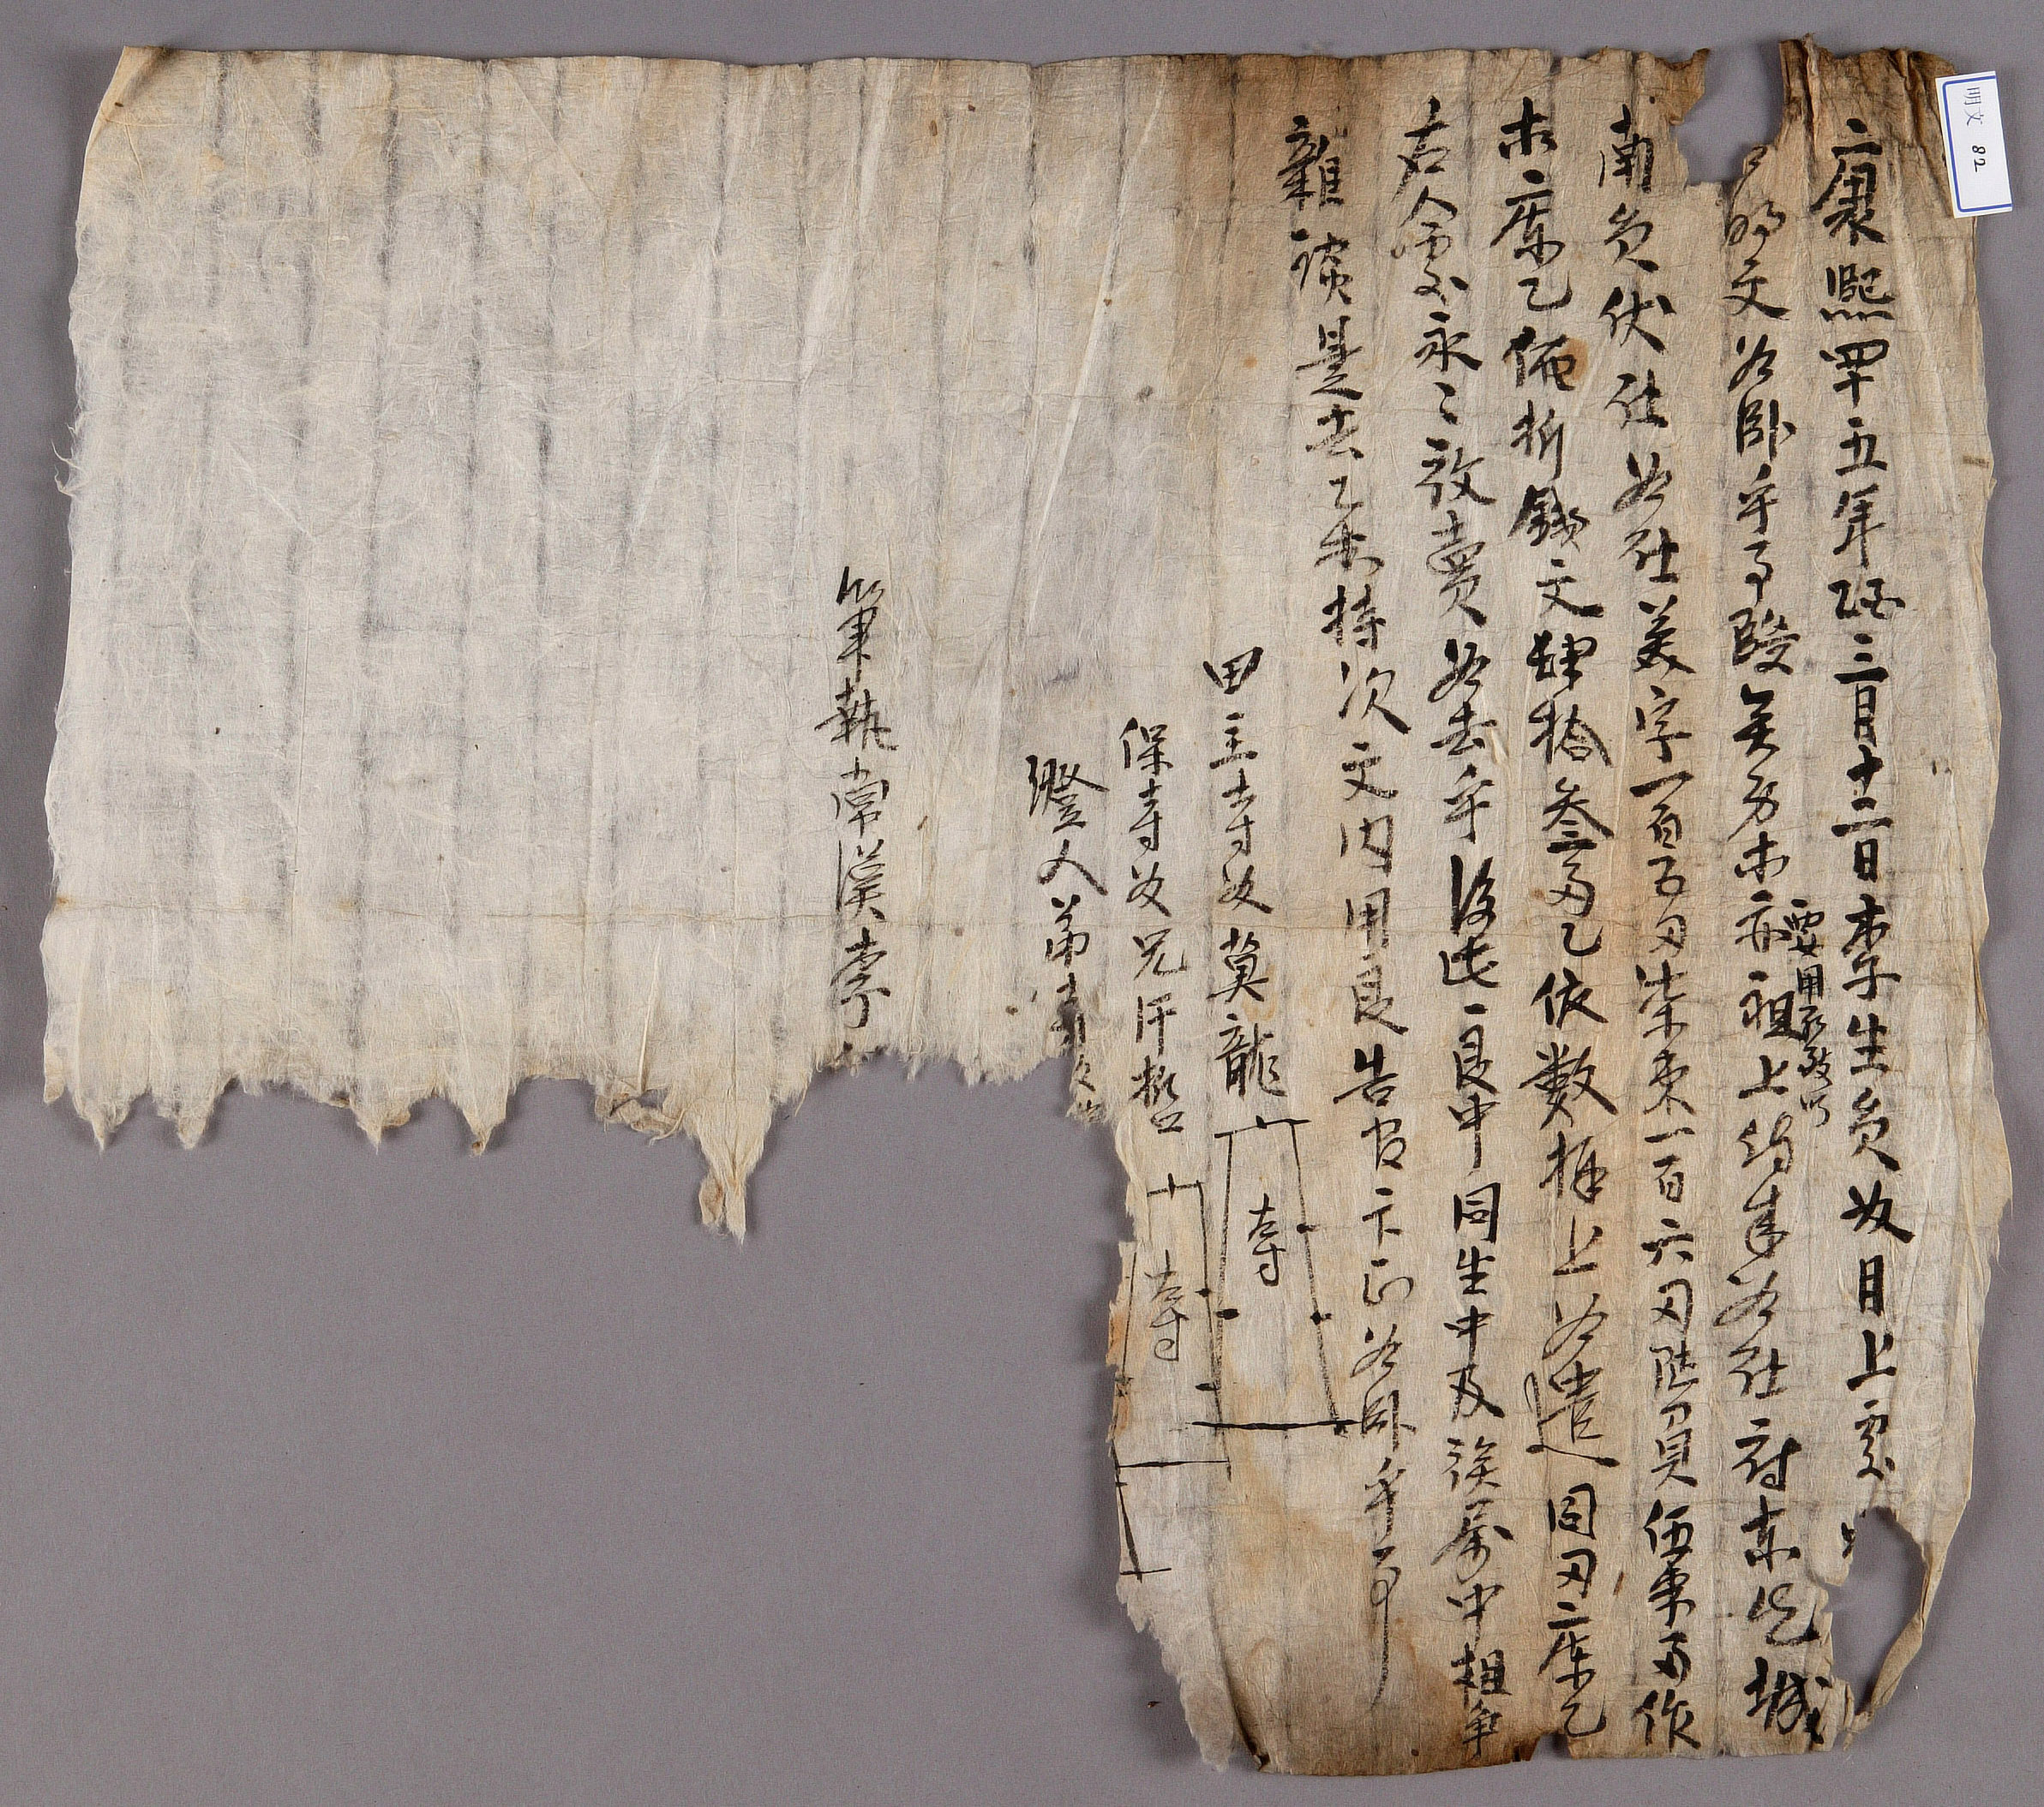 明文 82
康熙四十五年丙三月十二日李生員奴日上處
明文爲臥乎事段矣身亦 要用所致以 祖上傳來爲在府東邑城
南員伏在爲在美字一百五刃柒束一百六刃陸負伍束両作
庫乙価折錢文肆拾參両乙依數捧上爲遣同刃二庫乙
右人處永〻放賣爲去乎後此一良中同生中及族屬中相爭
雜談是去乙等持次文內用良告官卞正爲臥乎事
田主寺奴莫龍 左寸
保寺奴兄 左寸
證人弟寺奴
筆執常漢李